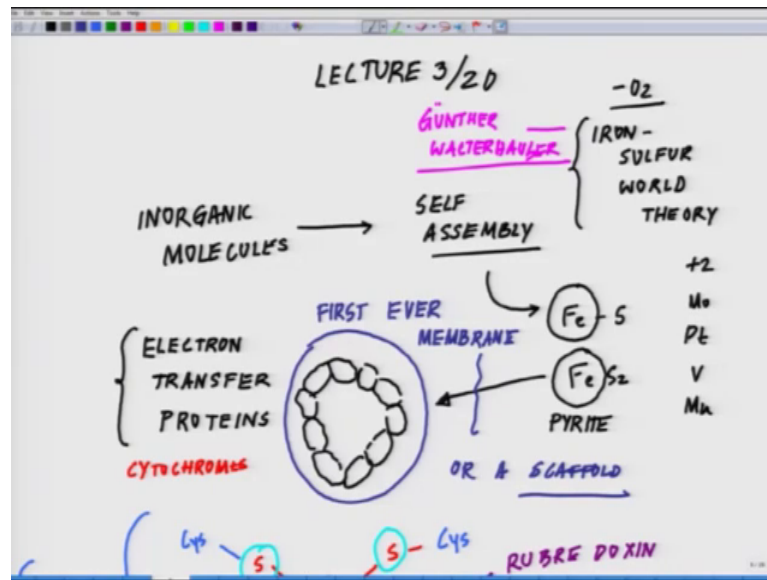 LECTURE 3/20
-O2
GÜNTHER
WALTERHAUSER
IRON-
SULFUR
WORLD
THEORY
INORGANIC
MOLECULES
SELF
ASSEMBLY
+2
Mo
Pt
V
Mn
Fe-S
FeS2
PYRITE
FIRST EVER
MEMBRANE
OR A SCAFFOLD
ELECTRON
TRANSFER
PROTEINS
CYTOCHROMES
Cys
S
S
Cys
RUBRE DOXIN